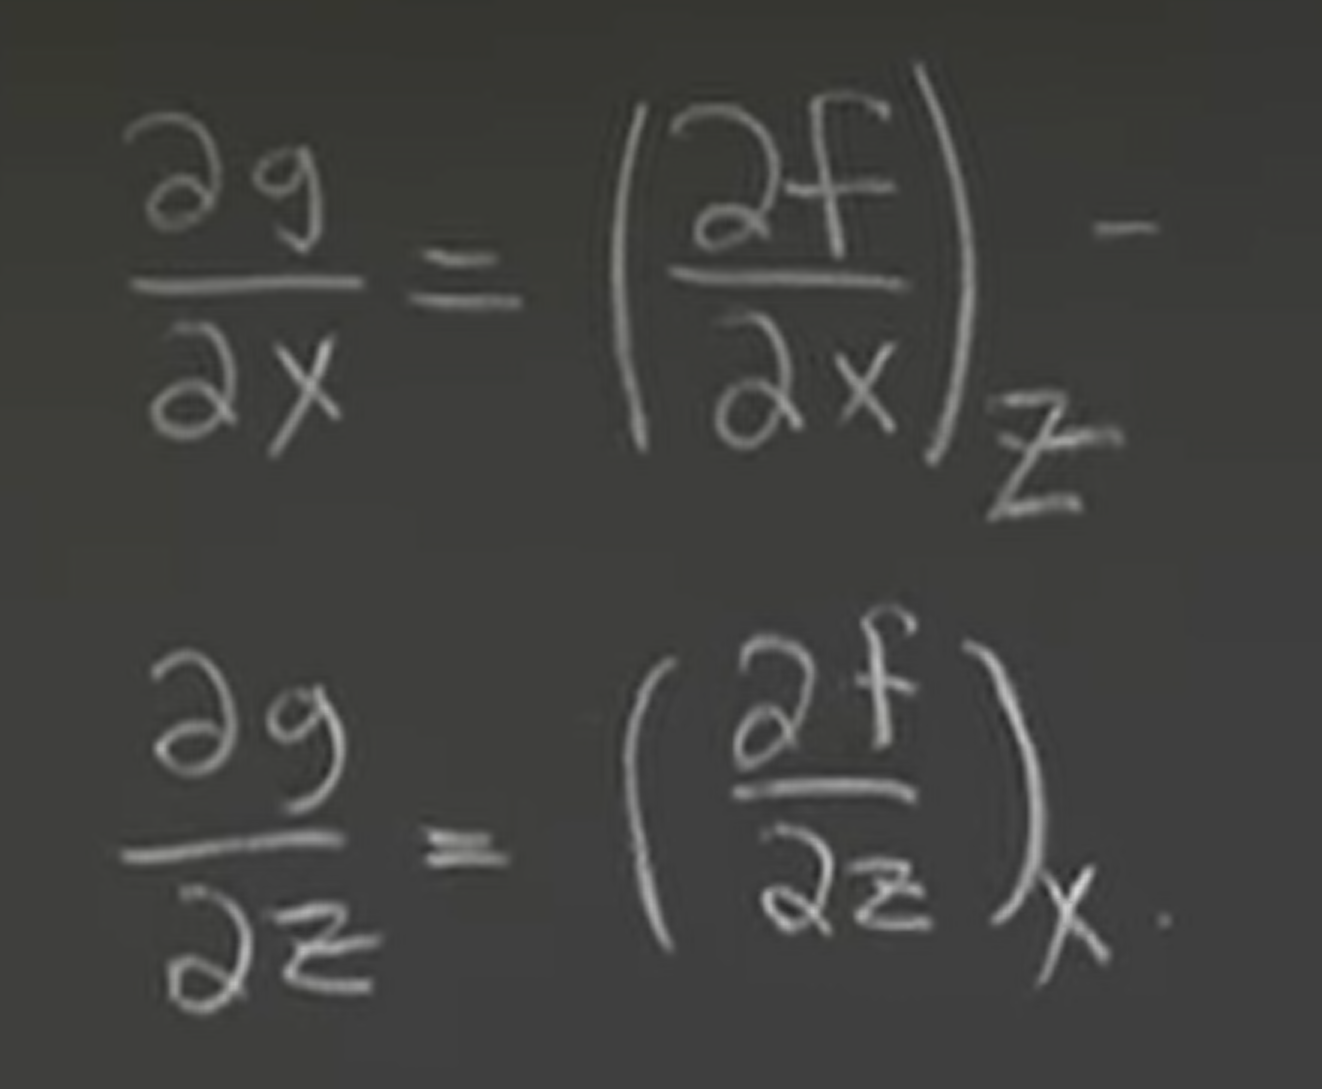 ∂g/∂x = (∂f/∂x)_z -
∂g/∂z = (∂f/∂z)_x .